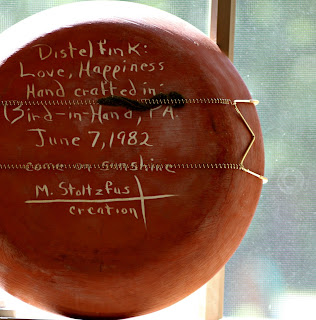 Distelfink:
Love, Happiness
Hand crafted in
Bird-in-Hand, PA.
June 7, 1982
come on sunshine
M. Stoltzfus
creation